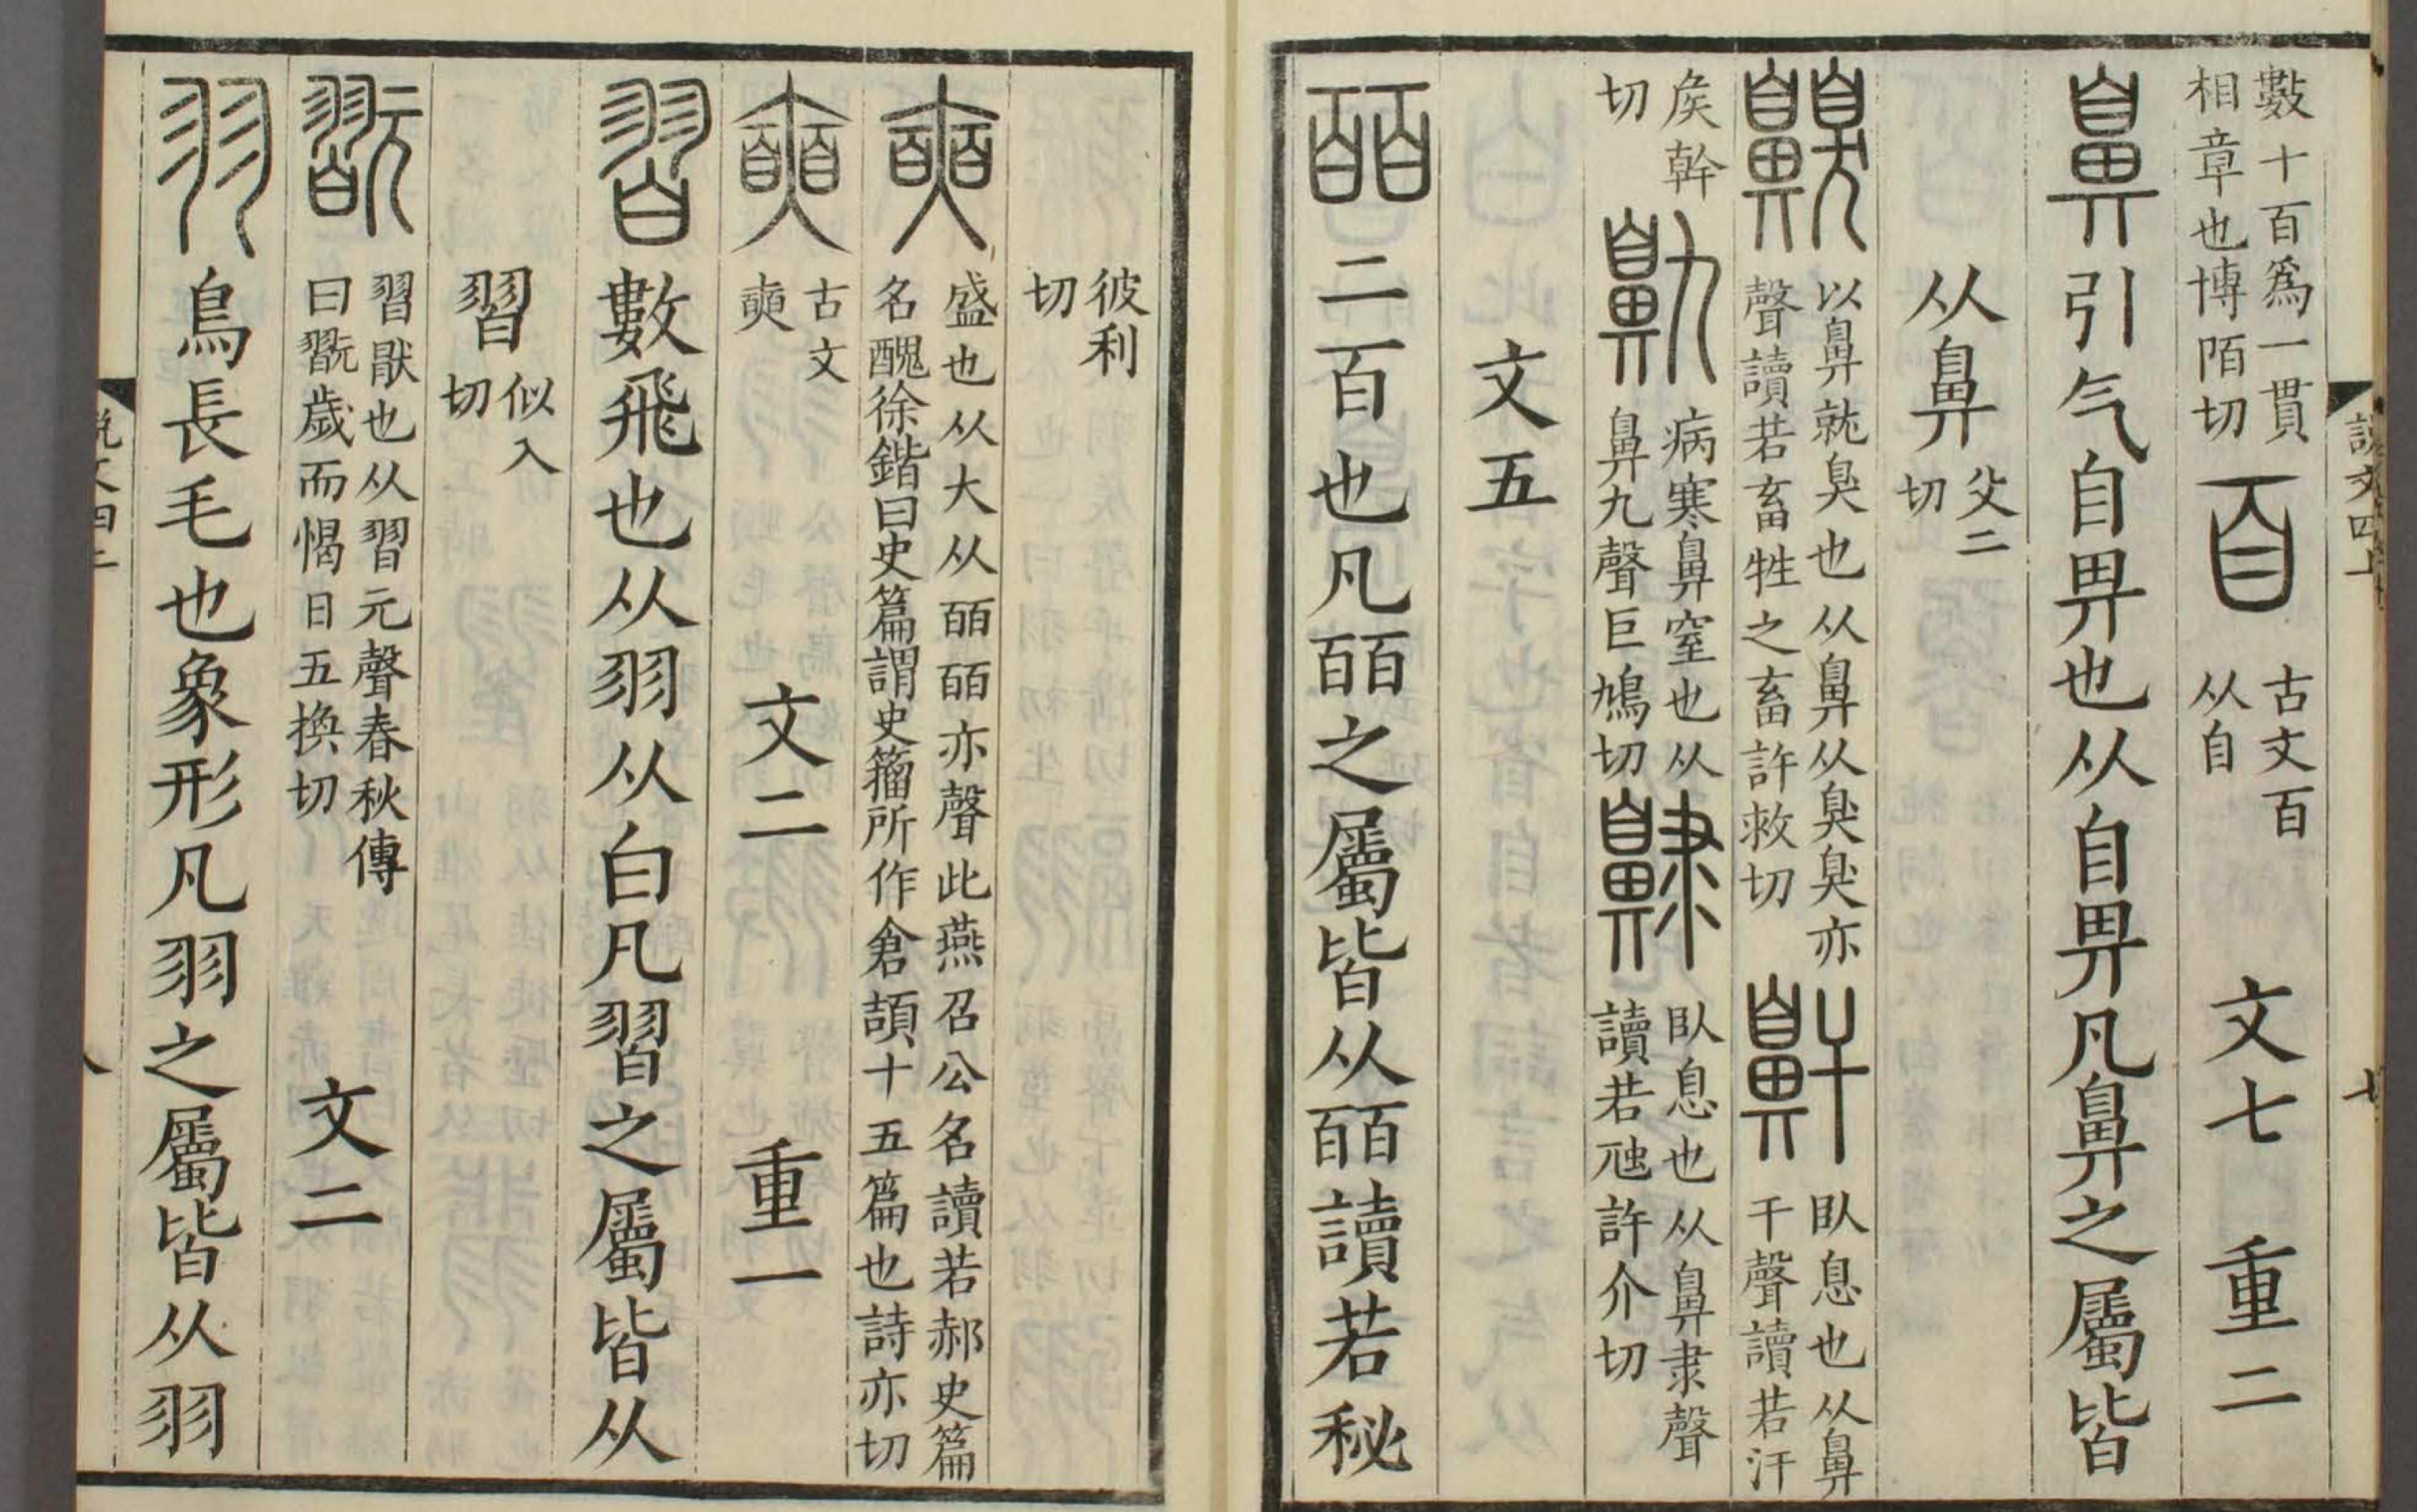 説文四上 七
數十百爲一貫相章也博陌切 百 古文百从自 文七 重二
鼻 引气自畀也从自畀凡鼻之屬皆
从鼻 父二切
齅 以鼻就臭也从鼻从臭臭亦聲讀若畜牲之畜許救切 鼾 臥息也从鼻干聲讀若汗
矦幹切 鼽 病寒鼻窒也从鼻九聲巨鳩切 齂 臥息也从鼻隶聲讀若虺許介切
文五
皕 二百也凡皕之屬皆从皕讀若秘
彼利切
奭 盛也从大从皕皕亦聲此燕召公名讀若郝史篇名醜徐鍇曰史篇謂史籀所作倉頡十五篇也詩亦切
奭 古文奭 文二 重一
習 數飛也从羽从白凡習之屬皆从
習 似入切
翫 習猒也从習元聲春秋傳曰翫歲而愒日五換切 文二
羽 鳥長毛也象形凡羽之屬皆从羽